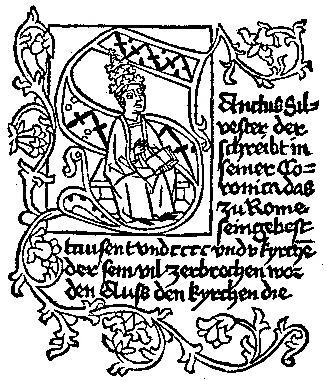 SAnctus Sil=
vester der
schreibt in
seiner Co=
ronica das
zu Rome
sein gebest
tausent vnd cccc vnd v kyrche
der sein vil zerbrochen wor
den Auß den kyrchen die